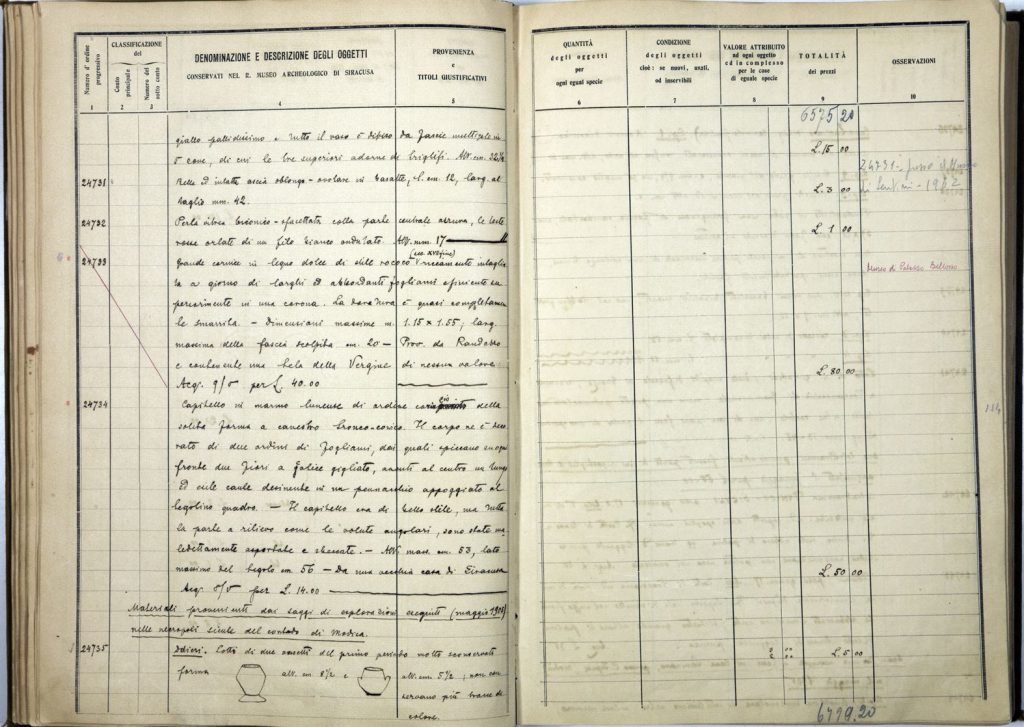 Numero d'ordine progressivo
CLASSIFICAZIONE del
Conto principale
Numero del sotto conto
DENOMINAZIONE E DESCRIZIONE DEGLI OGGETTI
CONSERVATI NEL R. MUSEO ARCHEOLOGICO DI SIRACUSA
PROVENIENZA
e
TITOLI GIUSTIFICATIVI
1 2 3 4 5
giallo pallidissimo e tutto il vaso è diviso da fascie in
5 zone, di cui le tre superiori adorne di triglifi. Alt. cm.
24731 Bella ed intatta ascia oblonga-ovolare in basalte, l. cm. 12, larg. al
taglio mm. 42.
24732 Perla vitrea biconico-sfaccettata colla parte centrale azzurra, le teste
rosse orlate di un filo bianco ondulato. Alt. mm. 17
(sec. XVII fine)
24733 Grande cornice in legno dolce di stile rococò riccamente intaglia
ta a giorno di larghi ed abbondanti fogliami e finiente su
periormente in una corona. La doratura è quasi completamen
te smarrita. - Dimensioni massime m. 1.15 × 1.55; larg.
massima della fascia scolpita cm. 20 - Prov. da Randazzo
e contenente una tela della Vergine di nessun valore.
Acq. 9/5 per L. 40.00
24734 Capitello in marmo lunense di ordine della
solita forma a canestro tronco-conico. Il corpo ne è deco
rato di due ordini di fogliami, dai quali spiccano su ogni
fronte due fiori a calice gigliato, al centro un lungo
ed esile caule desinente in un pennacchio appoggiato al
tegolino quadro. - Il capitello era di bello stile, ma tutta
la parte a rilievo come le volute angolari, sono state ma
ledettamente asportate e - Alt. mass. cm. 53, lato
massimo del tegolo cm. 56 - Da una vecchia casa di Siracusa
Acq. per L. 14.00
Materiali provenienti dai saggi di esplorazioni eseguiti (maggio
nelle necropoli sicule del contado di Modica.
24735 Lotti di due vasetti del primo periodo molto sconservati
forma alt. cm. 8 1/2 e alt. cm. 5 1/2; non con
servano più tracce di
colore.
QUANTITÀ
degli oggetti
per
ogni eguale specie
CONDIZIONE
degli oggetti
cioè: se nuovi, usati,
od inservibili
VALORE ATTRIBUITO
ad ogni oggetto
ed in complesso
per le cose
di eguale specie
TOTALITÀ
dei prezzi
OSSERVAZIONI
6 7 8 9 10
6575 20
L. 15 00
24731 - Museo
di Lentini - 1962
L. 3 00
L. 1 00
Museo di Palazzo Bellomo
L. 80 00
L. 50 00
L. 5 00